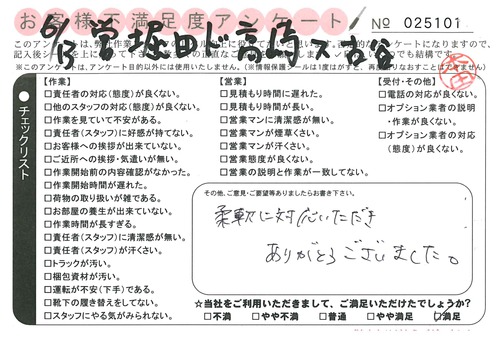 お客様不満足度アンケート
№ 025101
6/13 営 堀田 ド 高嶋 ス 古谷
※このアンケートは、アンケート目的以外には使用いたしません。(※情報保護シールは1度はがすと、再
チェックリスト
【作業】
□責任者の対応(態度)が良くない。
□他のスタッフの対応(態度)が良くない。
□作業を見ていて不安がある。
□責任者(スタッフ)に好感が持てない。
□お客様への挨拶が出来ていない。
□ご近所への挨拶・気遣いが無い。
□作業開始前の内容確認がなかった。
□作業開始時間が遅れた。
□荷物の取り扱いが雑である。
□お部屋の養生が出来ていない。
□作業時間が長すぎる。
□責任者(スタッフ)に清潔感が無い。
□責任者(スタッフ)が汗くさい。
□トラックが汚い。
□梱包資材が汚い。
□運転が不安(下手)である。
□靴下の履き替えをしてない。
□スタッフにやる気がみられない。
【営業】
□見積もり時間に遅れた。
□見積もり時間が長い。
□営業マンに清潔感が無い。
□営業マンが煙草くさい。
□営業マンが汗くさい。
□営業態度が良くない。
□営業の説明と作業が一致してない。
【受付・その他】
□電話の対応が良くない。
□オプション業者の説明
・作業が良くない。
□オプション業者の対応
(態度)が良くない。
その他、ご意見・ご要望等ありましたらお書き下さい。
柔軟に対応いただき
ありがとうございました。
☆当社をご利用いただきまして、ご満足いただけたでしょうか?
□不満 □やや不満 □普通 □やや満足 □満足